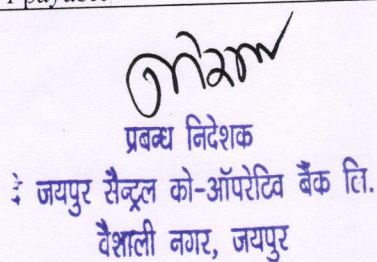 प्रबन्ध निदेशक
दे जयपुर सैन्ट्रल को-ऑपरेटिव बैंक लि.
वैशाली नगर, जयपुर